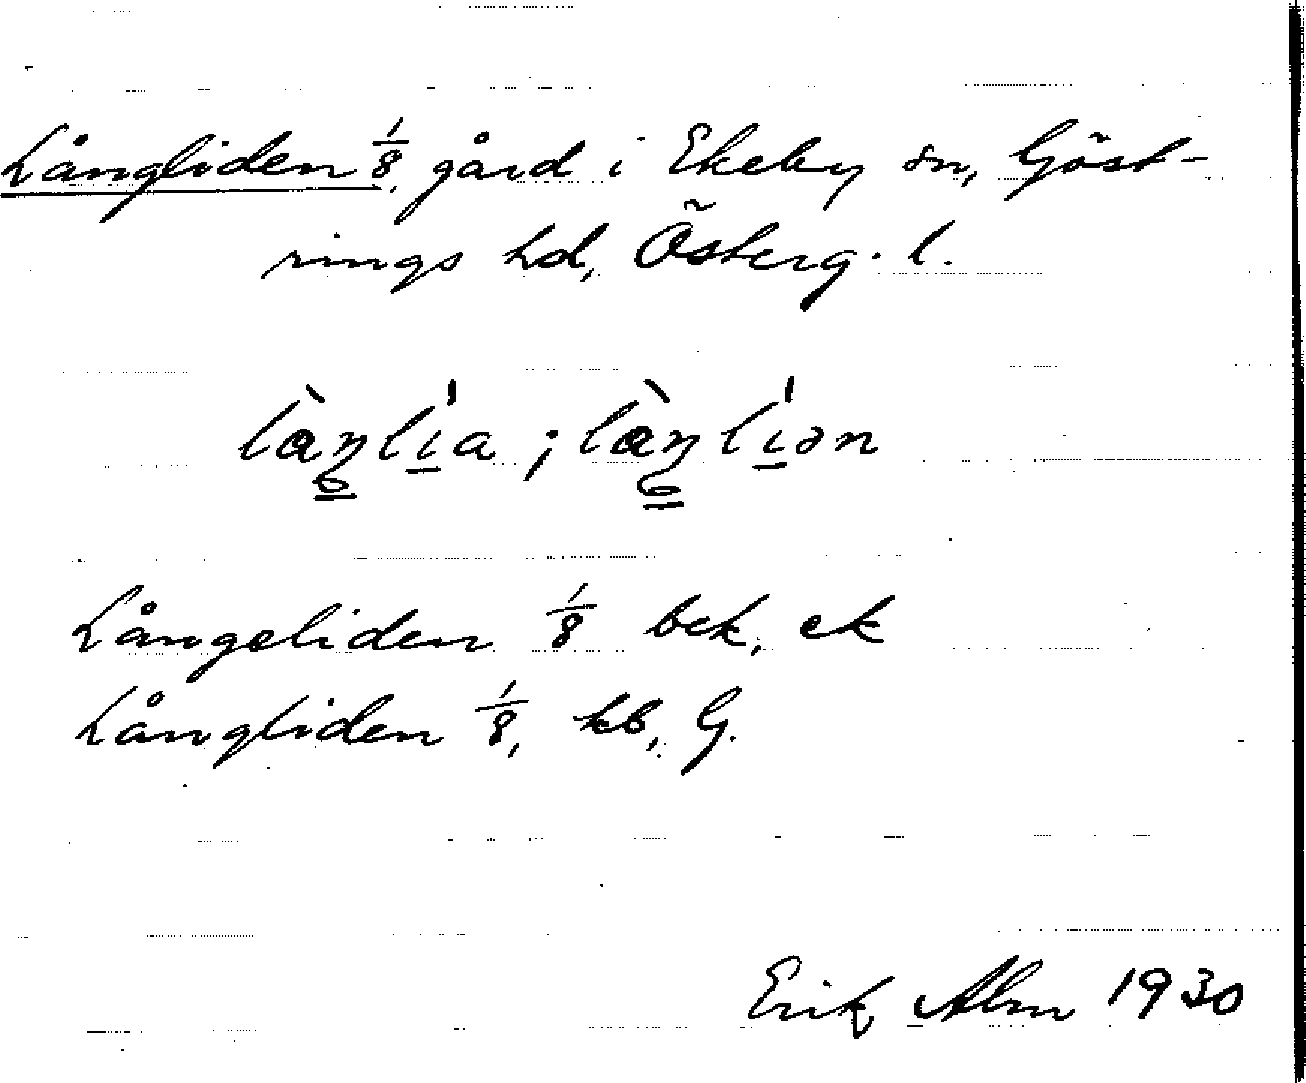 Långliden 1/8, gård i Ekeby sn, Göst-
rings hd, Österg. l.
làŋli̠a ; làŋli̠ən
Långeliden 1/8 bek, ek
Långliden 1/8, kb, G.
Erik Alm 1930